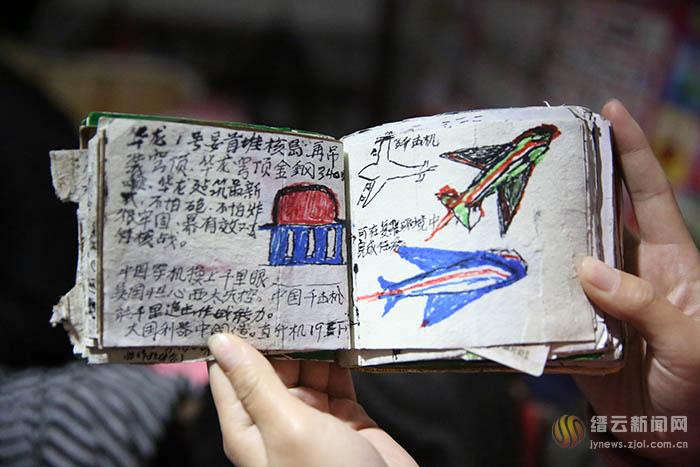 华龙1号妥首堆核岛.再吊
装穹顶.华龙穹顶金钢340
华龙建筑最新
式.不怕砲.不怕炸
很牢固.最有效对
付核战.
中国军机模上千里眼.
美国担心西太
中国千击机
能千里进击作战能力.
大国利器中国造.直升机19
歼击机
可在复杂环境中
完成任务
缙云新闻网
jynews.zjol.com.cn